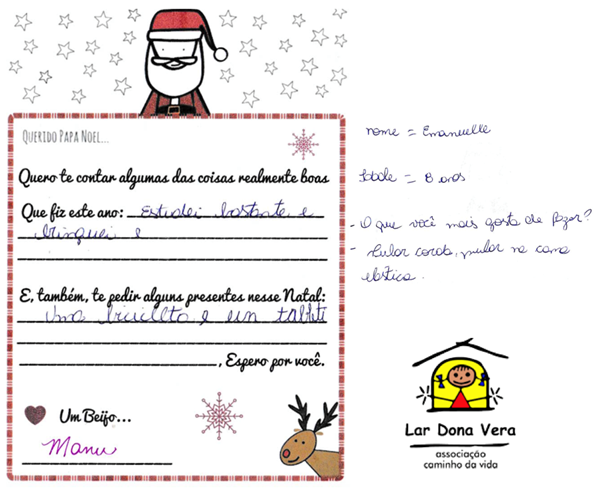 QUERIDO PAPA NOEL...
Quero te contar algumas das coisas realmente boas
Que fiz este ano: Estudei bastante e
brinquei e
E, também, te pedir alguns presentes nesse Natal:
Uma bicicleta e un tabliti
, Espero por você.
Um Beijo...
Manu
nome = Emanuelle
Idade = 8 anos
- O que você mais gosta de fazer?
- Pular corda, pular na cama
elástica.
Lar Dona Vera
associação
caminho da vida